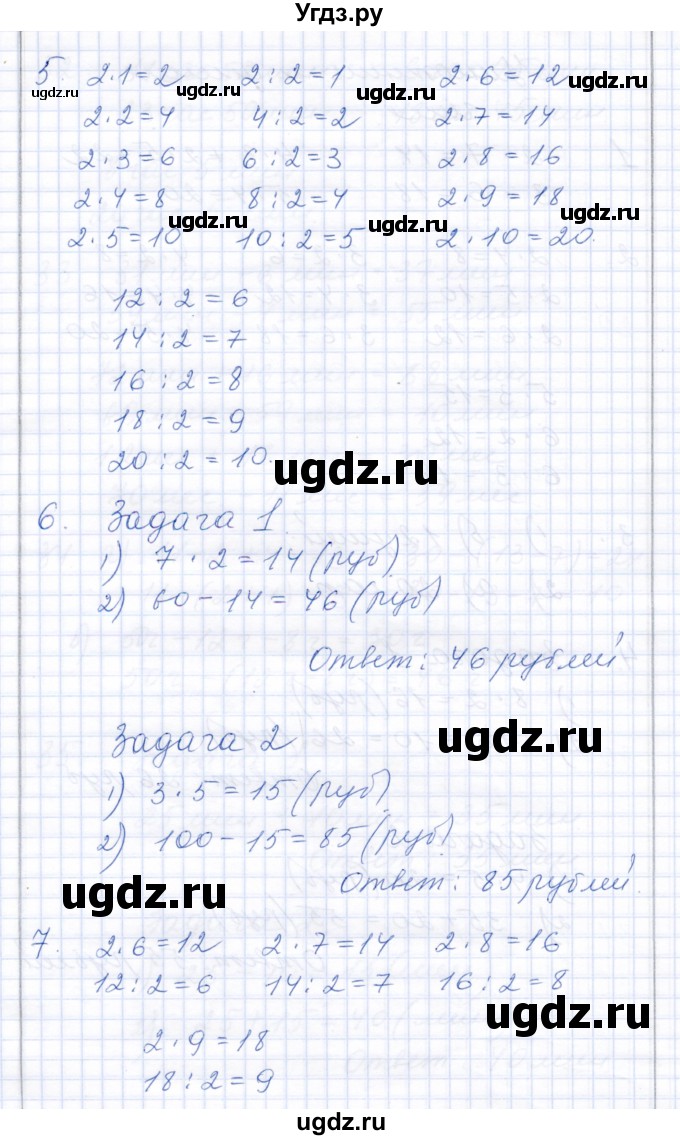 Угдз.ру
5. 2·1=2 2:2=1 2·6=12
2·2=4 4:2=2 2·7=14
2·3=6 6:2=3 2·8=16
2·4=8 8:2=4 2·9=18
2·5=10 10:2=5 2·10=20.
12:2=6
14:2=7
16:2=8
18:2=9
20:2=10.
6. Задача 1.
1) 7·2=14 (руб)
2) 60-14=46 (руб)
Ответ: 46 рублей
Задача 2
1) 3·5=15 (руб)
2) 100-15=85 (руб)
Ответ: 85 рублей.
7. 2·6=12 2·7=14 2·8=16
12:2=6 14:2=7 16:2=8
2·9=18
18:2=9
ugdz.ru
ugdz.ru
ugdz.ru
ugdz.ru
ugdz.ru
ugdz.ru
ugdz.ru
ugdz.ru
ugdz.ru
ugdz.ru
ugdz.ru
ugdz.ru
ugdz.ru